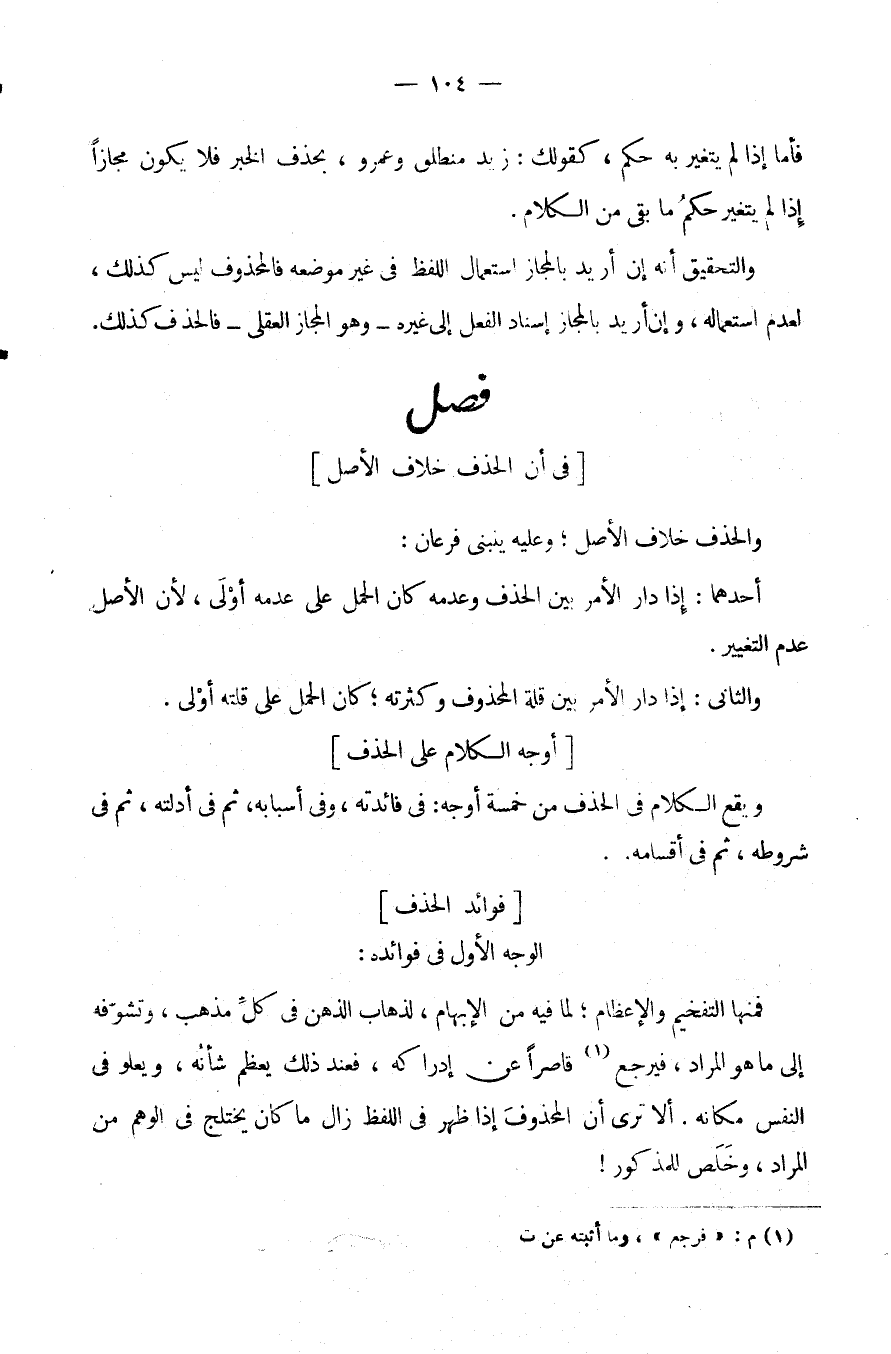 — ١٠٤ —
فأما إذا لم يتغير به حكم ، كقولك : زيد منطلق وعمرو ، بحذف الخبر فلا يكون مجازاً
إذا لم يتغير حكمُ ما بقى من الكلام .
والتحقيق أنه إن أريد بالمجاز استعمال اللفظ فى غير موضعه فالمحذوف ليس كذلك ،
لعدم استعماله ، وإن أريد بالمجاز إسناد الفعل إلى غيره – وهو المجاز العقلى – فالحذف كذلك.
فصل
[ فى أن الحذف خلاف الأصل ]
والحذف خلاف الأصل ؛ وعليه ينبنى فرعان :
أحدهما : إذا دار الأمر بين الحذف وعدمه كان الحمل على عدمه أوْلَى ، لأن الأصل
عدم التغيير .
والثانى : إذا دار الأمر بين قلة المحذوف وكثرته ؛ كان الحمل على قلته أوْلى .
[ أوجه الكلام على الحذف ]
ويقع الكلام فى الحذف من خمسة أوجه: فى فائدته ، وفى أسبابه، ثم فى أدلته ، ثم فى
شروطه ، ثم فى أقسامه. .
[ فوائد الحذف ]
الوجه الأول فى فوائده :
فمنها التفخيم والإعظام ؛ لما فيه من الإبهام ، لذهاب الذهن فى كلِّ مذهب ، وتشوّفه
إلى ما هو المراد ، فيرجع (١) قاصراً عن إدراكه ، فعند ذلك يعظم شأنُه ، ويعلو فى
النفس مكانه . ألا ترى أن المحذوفَ إذا ظهر فى اللفظ زال ما كان يختلج فى الوهم من
المراد ، وخَلَص للمذكور !
(١) م : « فرجع » ، وما أثبته عن ت